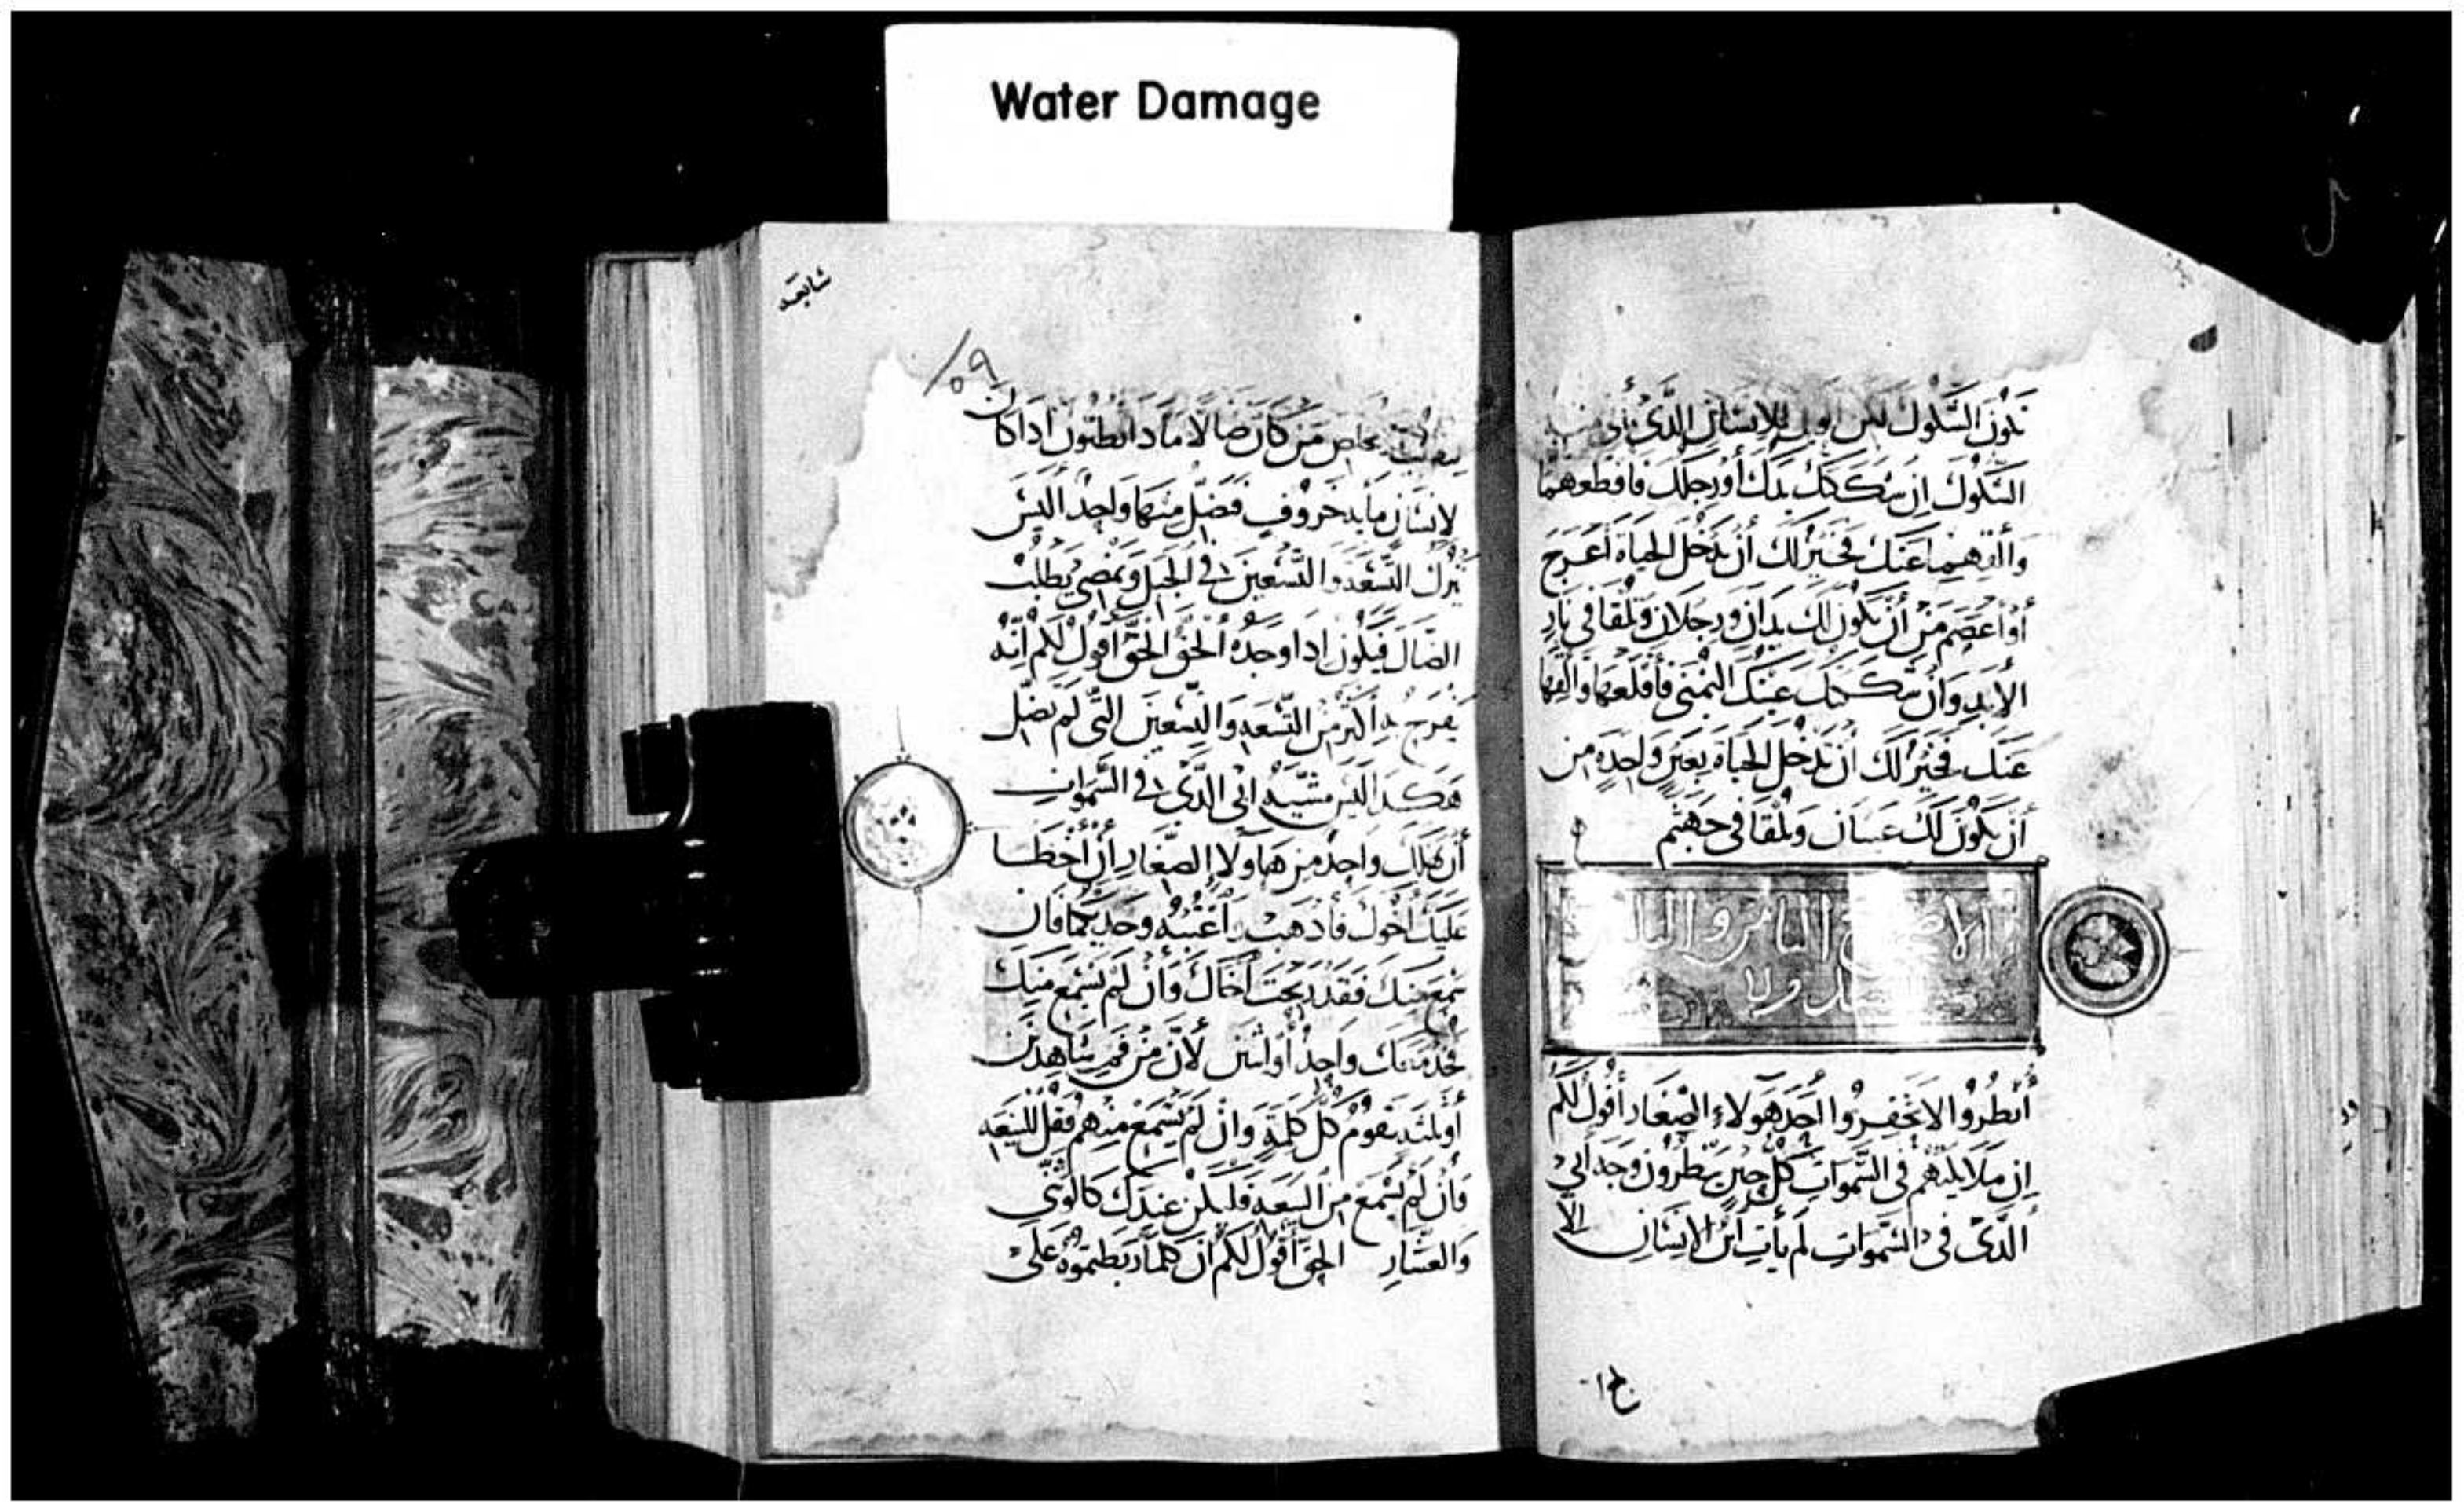 Water Damage
تكون الشكوك لكن الويل للانسان الذى
الشكوك ان شككتك يدك أو رجلك فاقطعهما
وألقهما عنك فخير لك أن تدخل الحياة أعرج
أو أعصم من أن تكون لك يدان ورجلان وتلقا في نار
الأبد وأن شككتك عينك اليمنى فأقلعها وألقها
عنك فخير لك أن تدخل الحياة بعين واحدة من
أن يكون لك عينان وتلقا في جهنم
أنظروا لا تحقروا أحد هولاء الصغار أقول لكم
إن ملايكتهم في السموات كل حين ينظرون وجه أبي
الذى في السموات لم يأت ابن الانسان الا
ج ١٠
شايعه
٥٩
من كان ضالا ما دا تظنون ادا كان
لانسان مايه خروف فضل منها واحد اليس
يترك التسعه والتسعين في الجبل ويمضي يطلب
الضال فيكون ادا وجده الحق الحق أقول لكم انه
يفرح به أكثر من التسعه والتسعين التي لم تضل
هكدا ليس مشيه ابي الدى في السموات
أن يهلك واحد من هاولاء الصغار إن أخطا
عليك أخوك فأدهب وأعتبه وحديكما فان
سمع منك فقد ربحت أخاك وان لم يسمع منك
فخد معك واحد أو اثنين لأن من فم شاهدين
أو ثلثه تقوم كل كلمة وان لم يسمع منهم فقل للبيعه
فان لم يسمع من البيعه فليكن عندك كالوثني
والعشار الحق أقول لكم ان كلما ربطتموه على